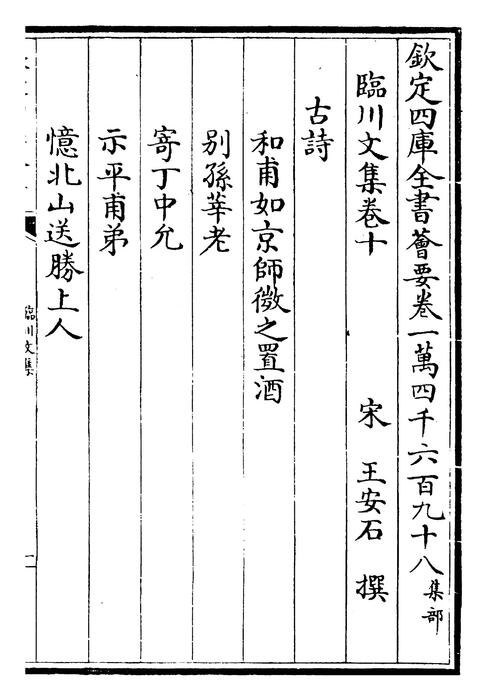 欽定四庫全書薈要卷一萬四千六百九十八 集部
臨川文集卷十 宋 王安石 撰
古詩
和甫如京師微之置酒
别孫莘老
寄丁中允
示平甫弟
憶北山送勝上人
臨川文集
一